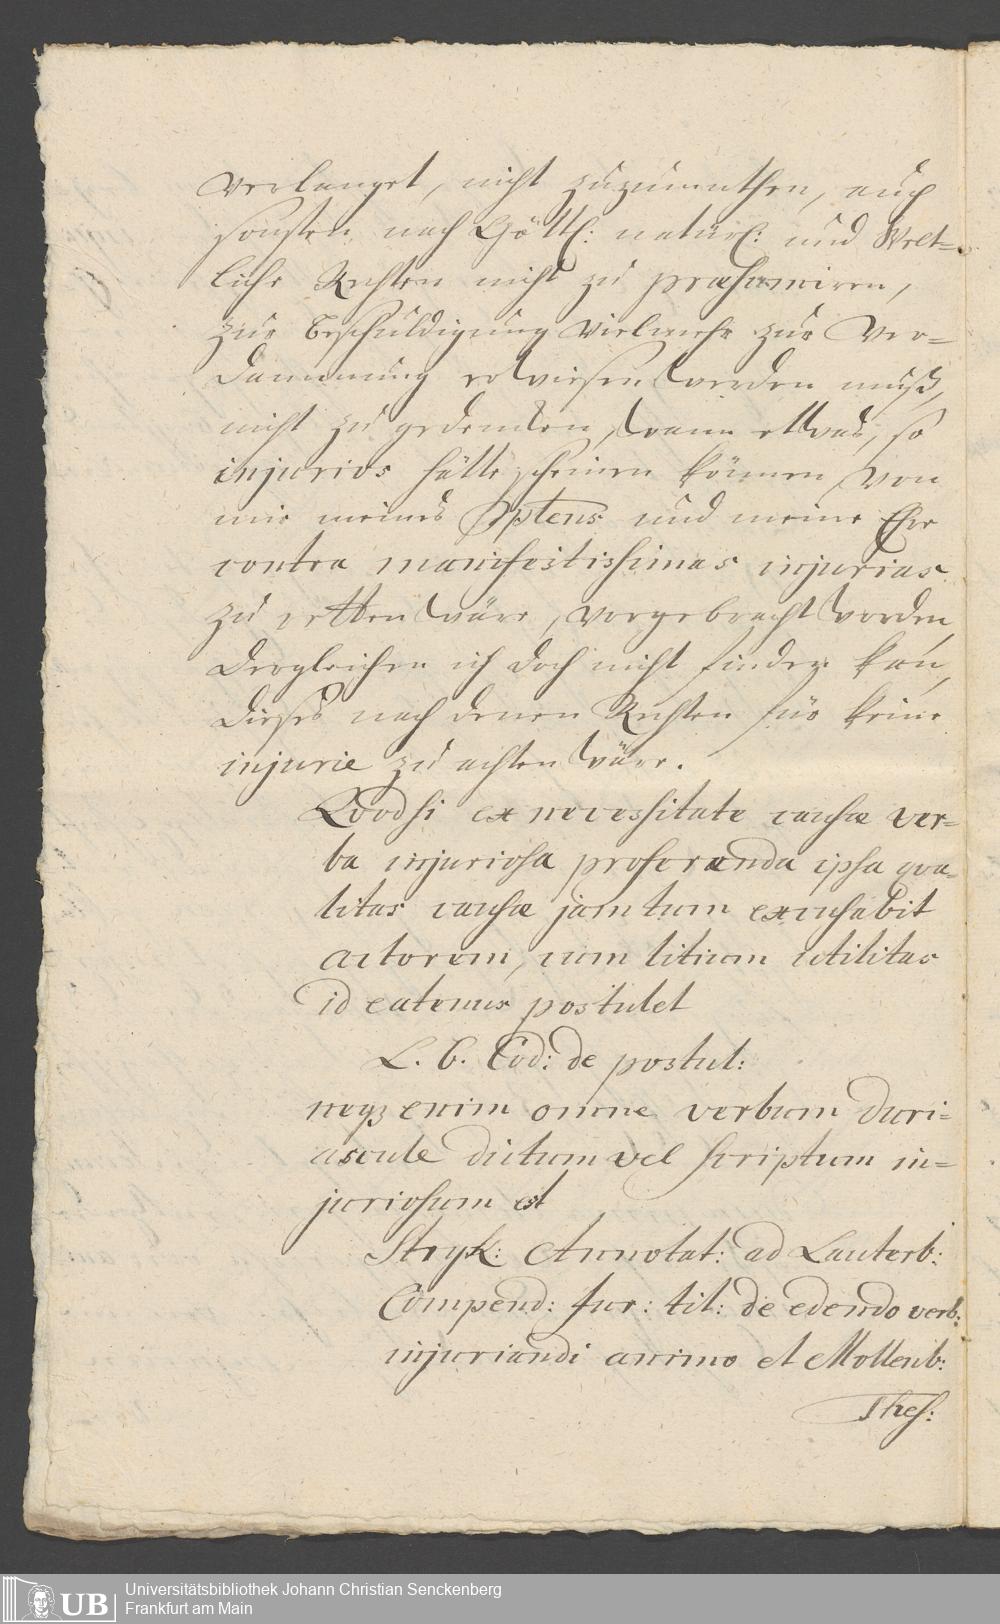 verlanget, nicht zuzumuthen, auch
sonsten nach Göttl: natürl: und Welt=
liche Rechten nicht zu præsumiren,
zur Beschuldigung vielmehr zur Ver=
dammung erwiesen werden muß,
nicht zu gedencken, wann etwas, so
injurios hätte scheinen können von
mir meines Ohtens und meine Ehre
contra manifestissimas injurias
zu retten wäre, vorgebracht worden,
dergleichen ich doch nicht finden kan,
dieses nach denen Rechten für keine
injurie zu achten wäre.
Qvodsi ex necessitate causæ ver=
ba injuriosa proferenda ipsa qva=
litas causæ jam tum excusabit
actorem, cum litium utilitas
id eatenus postulet
L. 6. Cod: de postul:
neqz enim omne verbum duri=
uscule dictum vel scriptum in=
juriosum est
Stryk: Annotat: ad Lauterb:
Compend: Jur: tit: de edendo verb:
injuriandi animo et Mollenb:
Thes:
Universitätsbibliothek Johann Christian Senckenberg
UB Frankfurt am Main